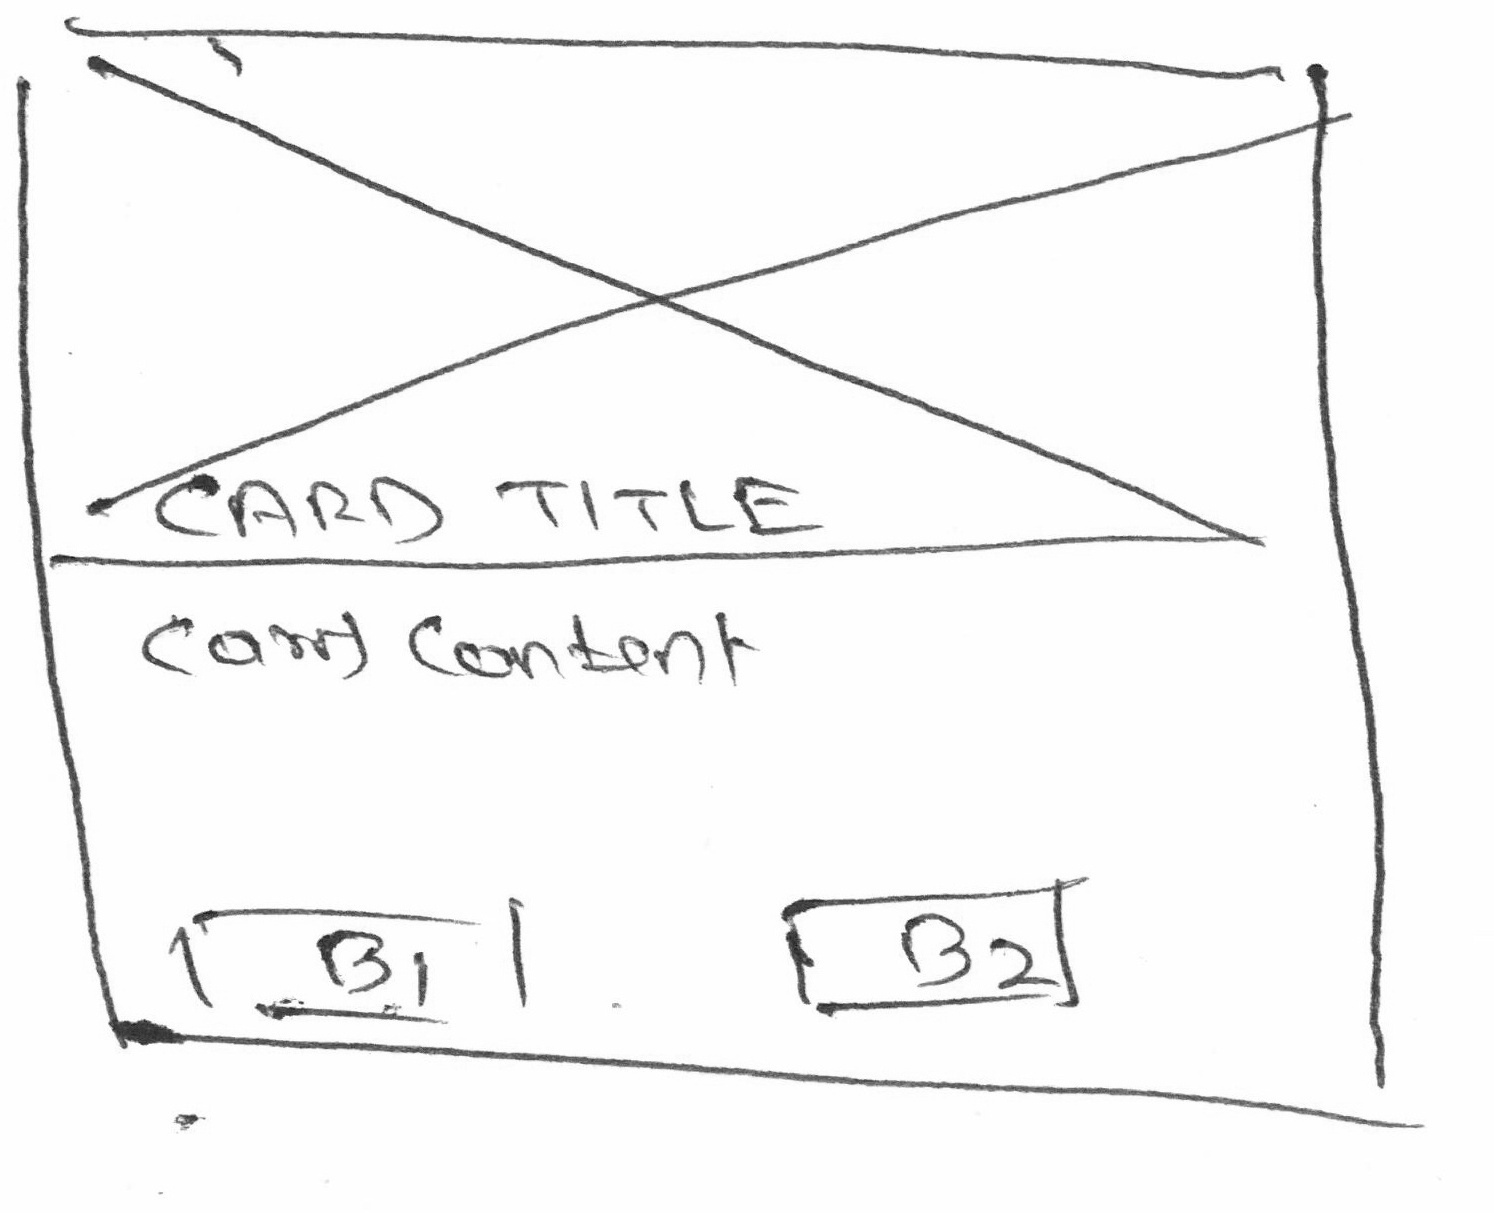 CARD TITLE
Card Content
B1 B2